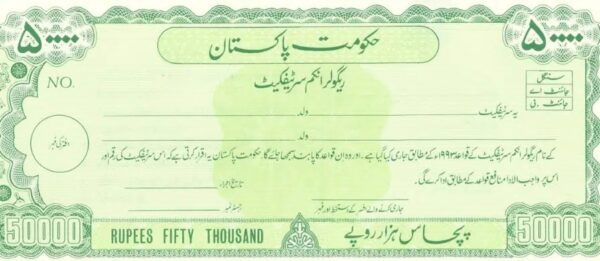 ۵۰۰۰۰ ۵۰۰۰۰
حکومت پاکستان
ریگولر انکم سرٹیفکیٹ
NO.
سنگل
جائنٹ اے
جائنٹ بی
یہ سرٹیفکیٹ ولد
ولد
کے نام ریگولر انکم سرٹیفکیٹ کے قواعد ۱۹۹۳ء کے مطابق جاری کیا گیا ہے۔ اور وہ ان قواعد کا پابند سمجھا جائے گا۔ حکومت پاکستان یہ اقرار کرتی ہے کہ اس سرٹیفکیٹ کی رقم اور
اس پر واجب الادا منافع قواعد کے مطابق ادا کرے گی۔
دفتر کی مہر
تاریخ اجراء
جاری کرنے والے افسر کے دستخط اور مہر
رجسٹر نمبر
50000 RUPEES FIFTY THOUSAND پچاس ہزار روپے 50000